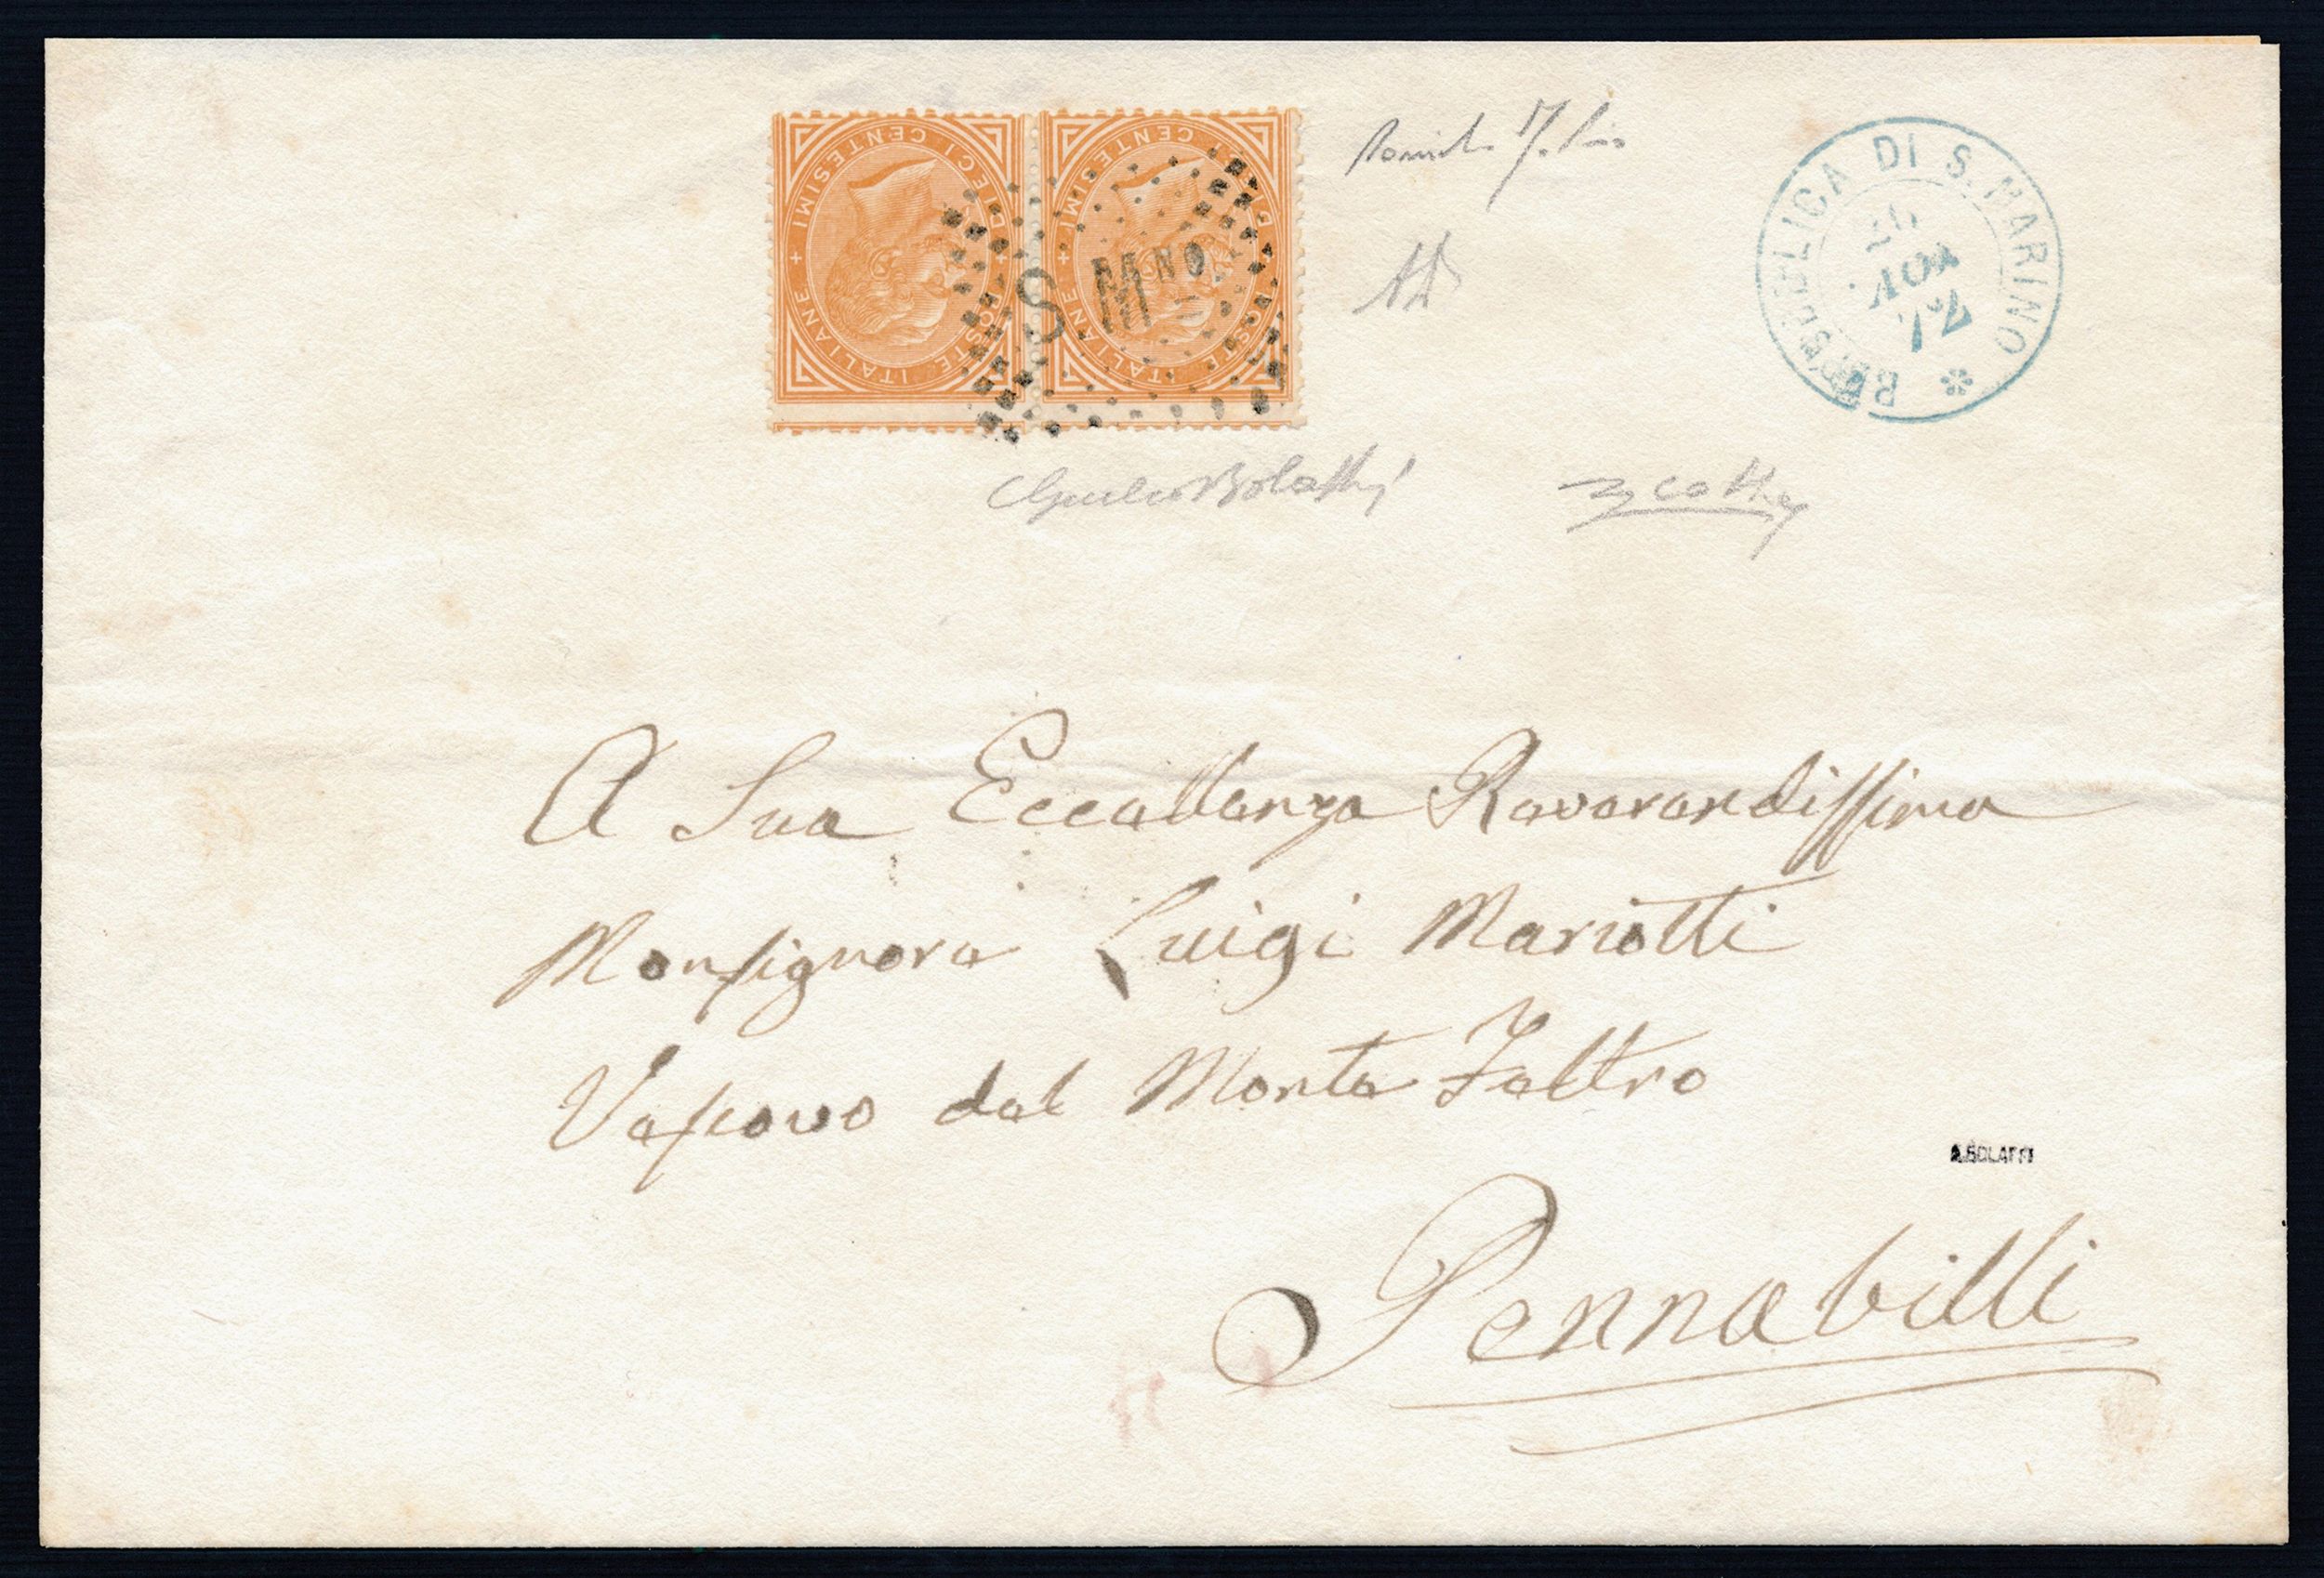 DIECI CENTESIMI + POSTE ITALIANE +
DIECI CENTESIMI + POSTE ITALIANE +
S. Mno.
REPUBBLICA DI S. MARINO
26
NOV
72
Giulio Bolaffi
A Sua Eccellenza Reverendissima
Monsignore Luigi Mariotti
Vescovo del Monte Feltro
A.BOLAFFI
Pennabilli